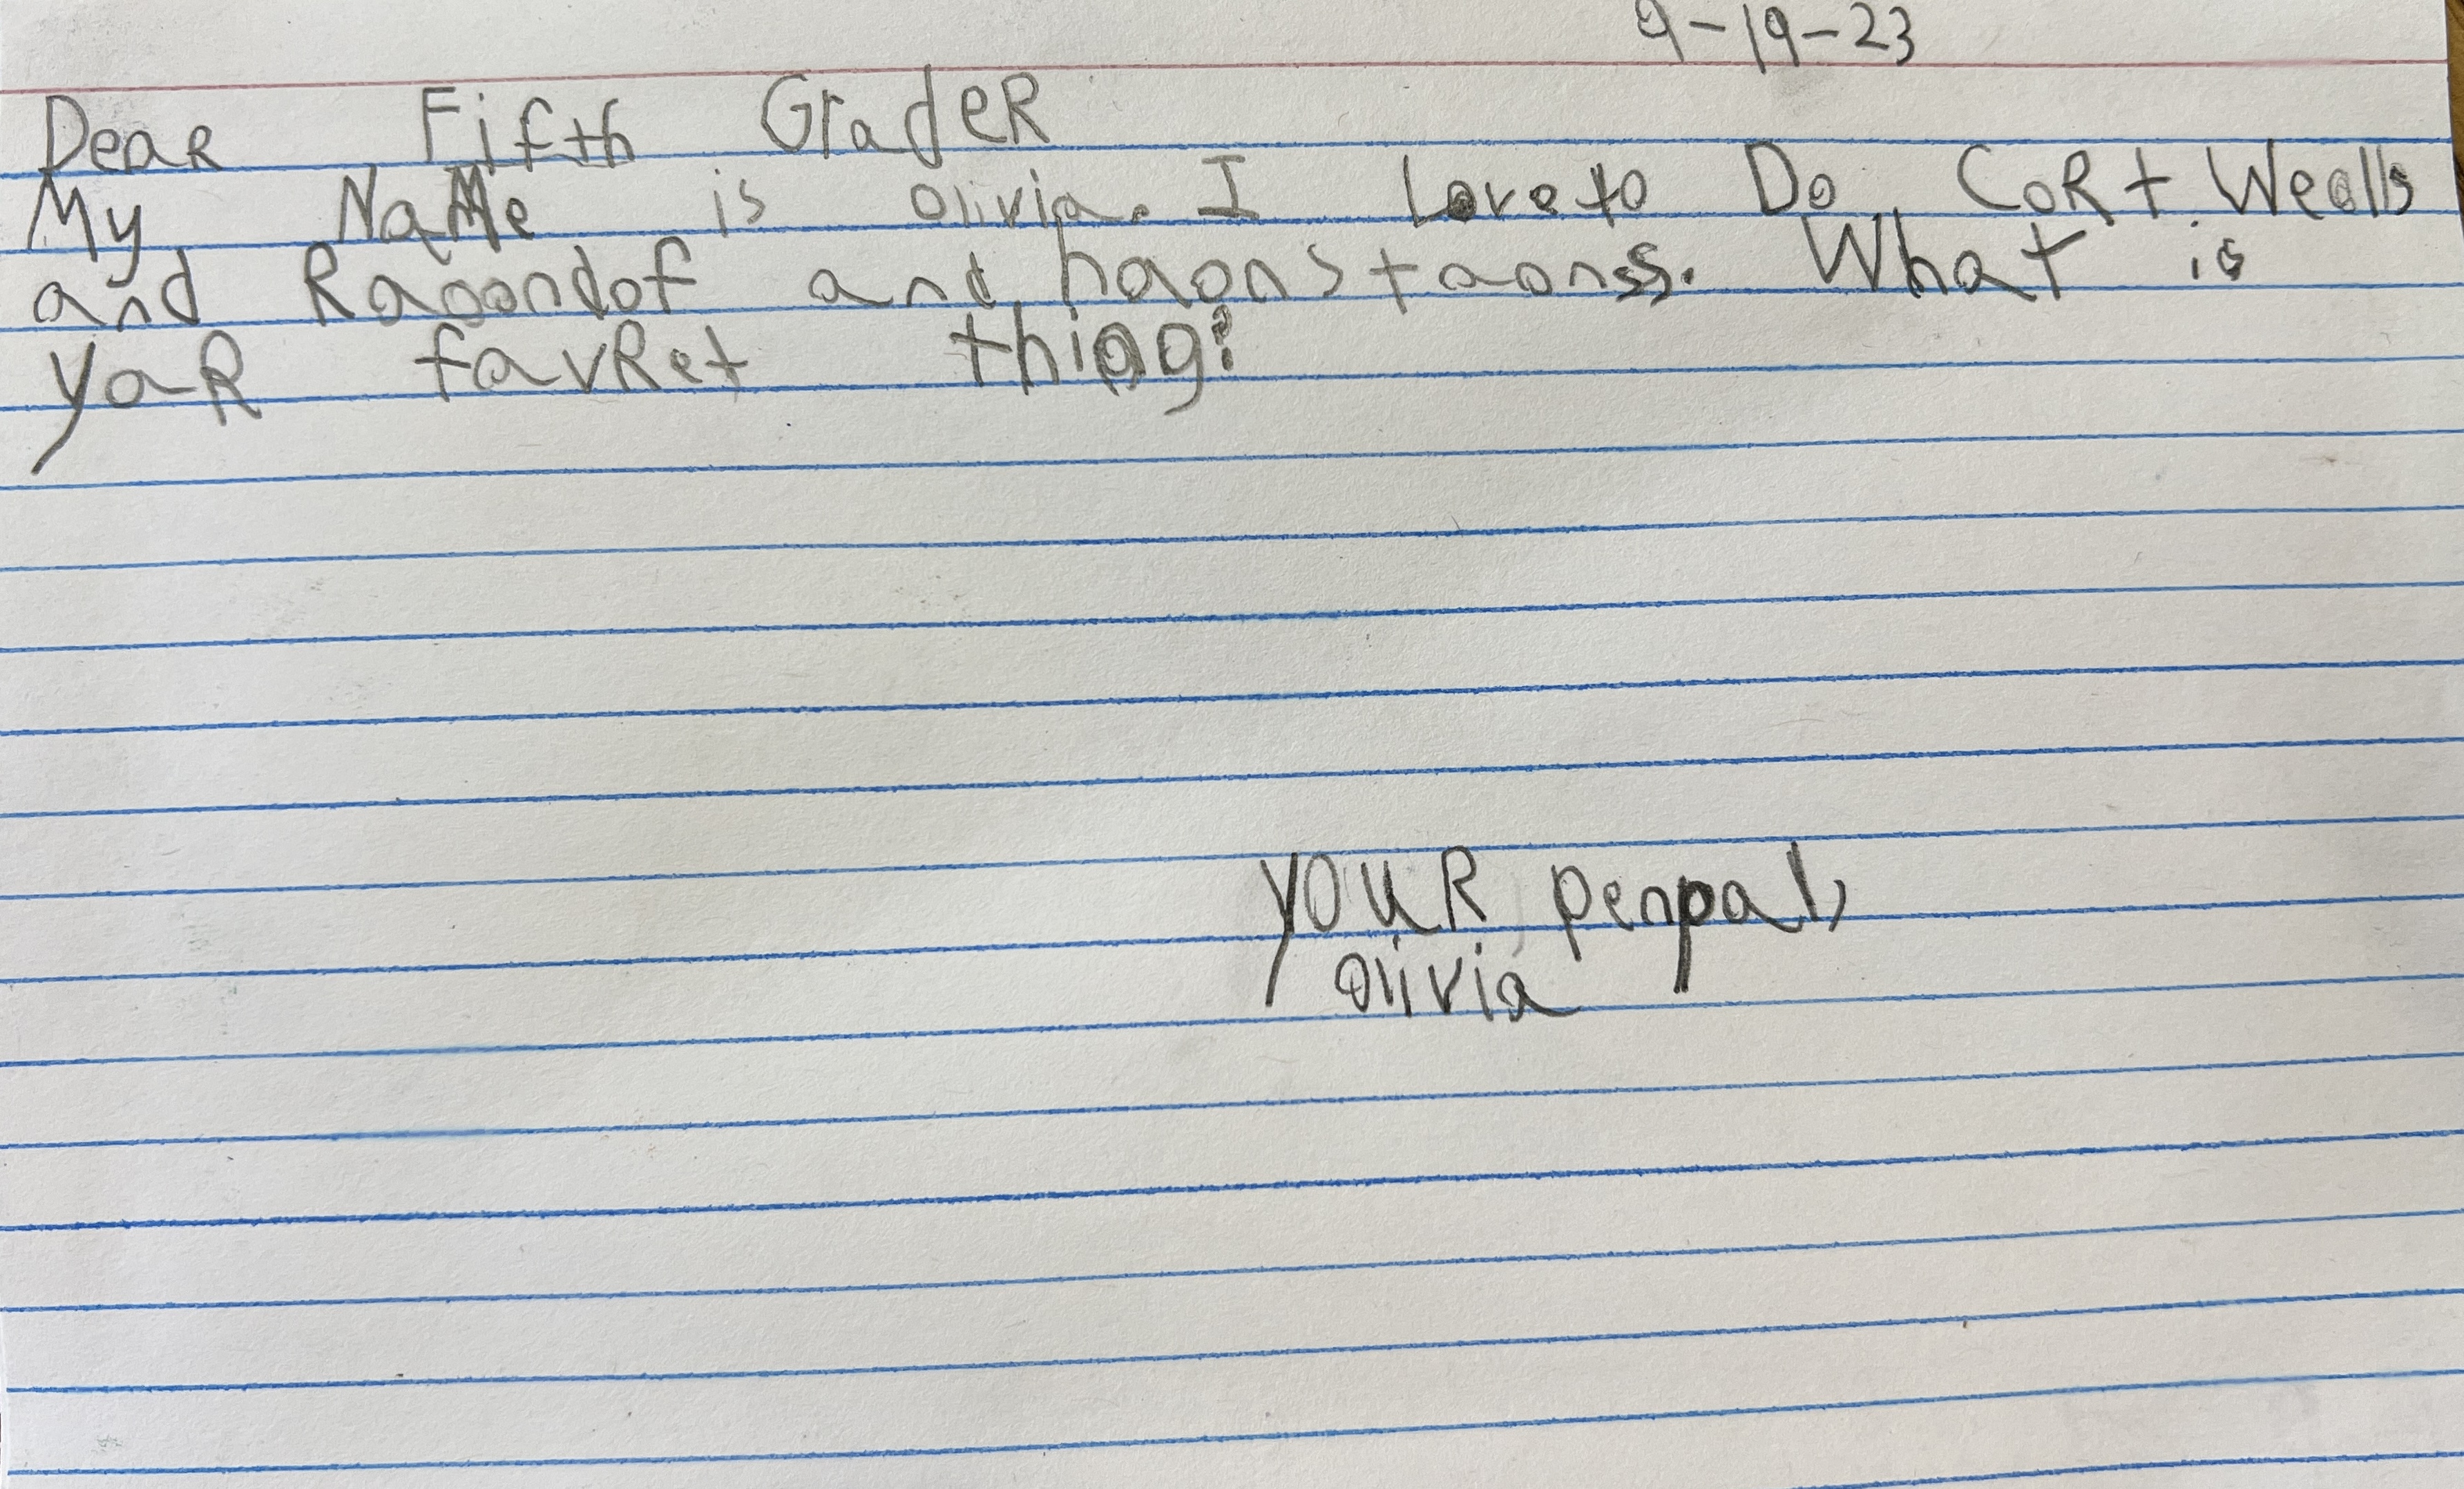 9-19-23
Dear Fifth GradeR
My NaMe is olivia. I Love to Do CoRt Wealls
and Raoondof and haonstaonss. What is
yoR favRet thing?
YOUR penpal,
olivia